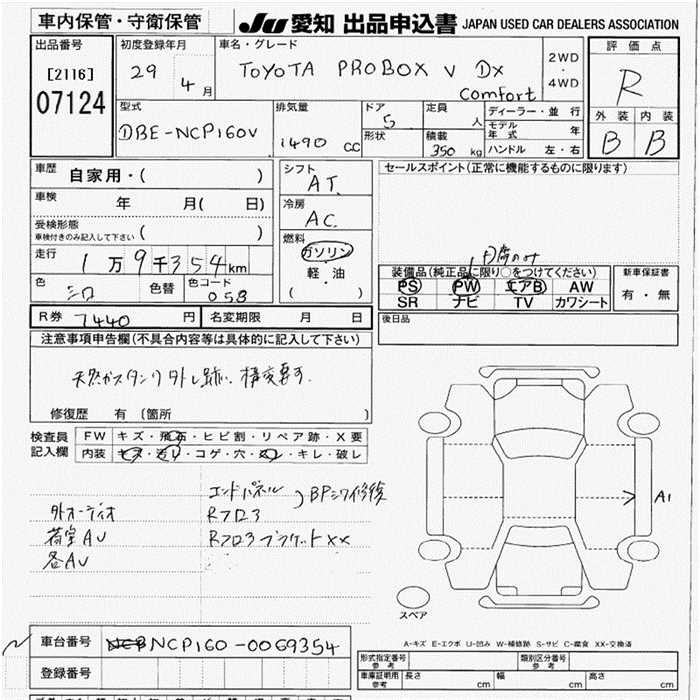 車内保管・守衛保管
JU 愛知 出品申込書 JAPAN USED CAR DEALERS ASSOCIATION
出品番号
[2116]
07124
初度登録年月
29 4月
車名・グレード
TOYOTA PROBOX V DX
Comfort
2WD
・
4WD
評価点
R
外装 内装
B B
型式
DBE-NCP160V
排気量
1490 CC
ドア
5
形状
定員
人
積載
350 kg
ディーラー・並行
モデル年式 年
ハンドル 左・右
車歴
自家用・( )
車検
年 月( 日)
受検形態
車検付きのみ記入して下さい ( )
走行
1万9千354km
色
シロ
色替
色コード
058
シフト
AT.
冷房
AC.
燃料
ガソリン
軽・油
( )
セールスポイント(正常に機能するものに限ります)
装備品(純正品に限り○をつけてください)
PS PW エアB AW
SR ナビ TV カワシート
新車保証書
有・無
R券 7440 円
名変期限 月 日
後日品
注意事項申告欄(不具合内容等は具体的に記入して下さい)
天然ガスタンク外し跡、構変要す.
修復歴 有 (箇所 )
検査員
記入欄
FW キズ・飛石・ヒビ割・リペア跡・X要
内装 キズ・汚レ・コゲ・穴・スレ・キレ・破レ
エンドパネル
Rフロ3
)BPシワ修後
外オーディオ
荷室AU
Rフロ3ブラケットXX
各AU
A1
スペア
A-キズ E-エクボ U-凹み W-補修跡 S-サビ C-腐食 XX-交換済
車台番号 NCP160-0069354
登録番号
形式指定番号
参考
類別区分番号
参考
車庫証明用
参考
長さ cm 幅 cm 高さ cm